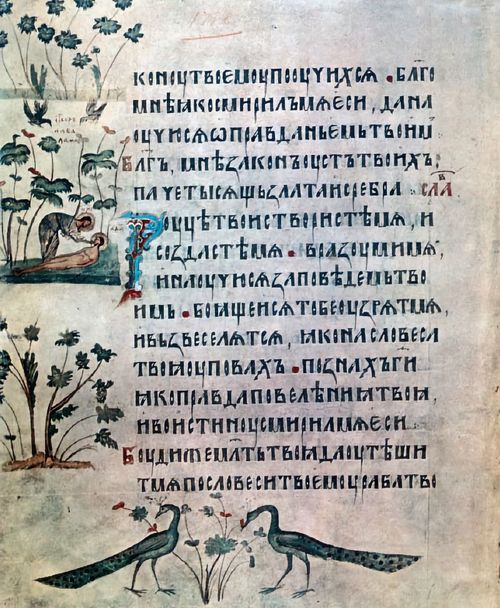 коноутвоемоупооучихсѧ · блго
мнѣꙗкосмирилъмѧеси, дана
оучюсѧѡправданьемьтвоим
Блгъ, мнѣзаконъоустътвоихъ,
пачетысѧщьзлатаисребра слав
Роуцѣтвоиствористѣмѧ, и
создастѣмѧ · вразоумимѧ,
инаоучюсѧзаповѣдемьтво
имь · боꙗщеисѧтобеоузрѧтмѧ,
ивъзвеселѧтсѧ, ꙗконасловеса
твоꙗоуповахъ · познахъги
ꙗкоправдаповелѣниꙗтвоꙗ,
ивоистиноусмирилмѧеси
Боудижемлтьтвоꙗдаоутѣши
тмѧпословеситвоемоурабатво